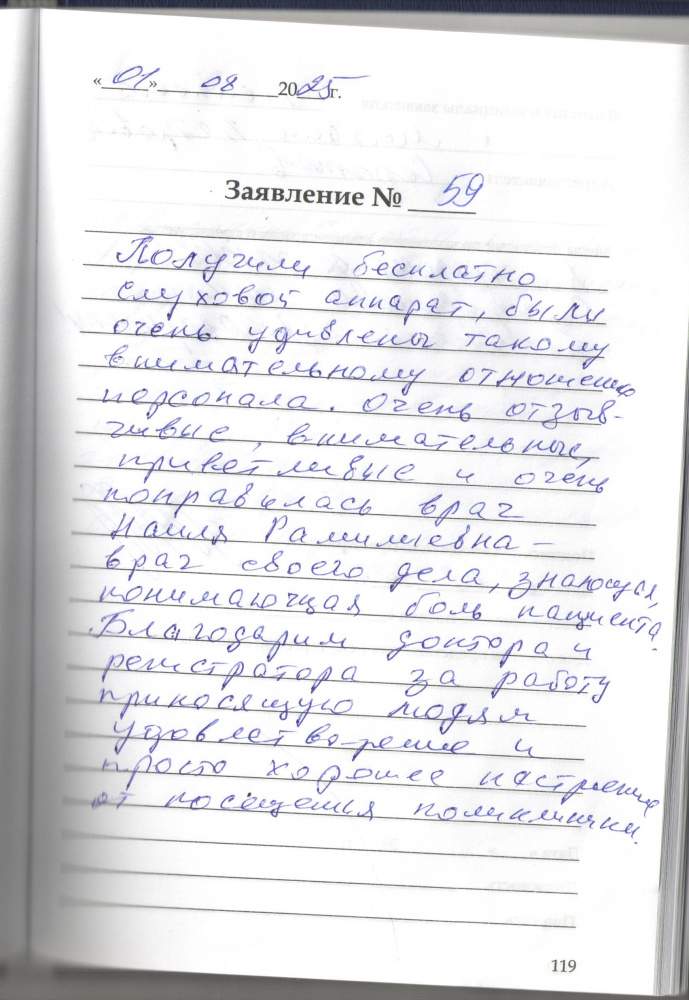 «01» 08 2025 г.
Заявление № 59
Получили бесплатно
слуховой аппарат, были
очень удивлены такому
внимательному отношению
персонала. Очень отзыв-
чивые, внимательные,
приветливые и очень
понравилась врач
Наиля Рамилевна –
врач своего дела, знающая,
понимающая боль пациента.
Благодарим доктора и
регистратора за работу
приносящую людям
удовлетворение и
просто хорошее настроение
от посещения поликлиники.
119